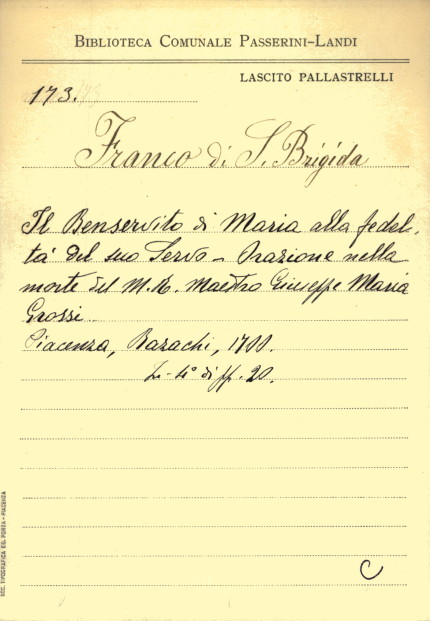 BIBLIOTECA COMUNALE PASSERINI-LANDI
LASCITO PALLASTRELLI
173.
Franco di S. Brigida
Il Benservito di Maria alla fedel,
tà del suo Servo - Orazione nella
morte del M. R. Maestro Giuseppe Maria
Grossi.
Piacenza, Bazachi, 1700.
In-4° di ff. 20.
C
SOC. TIPOGRAFICA ED. PORTA - PIACENZA